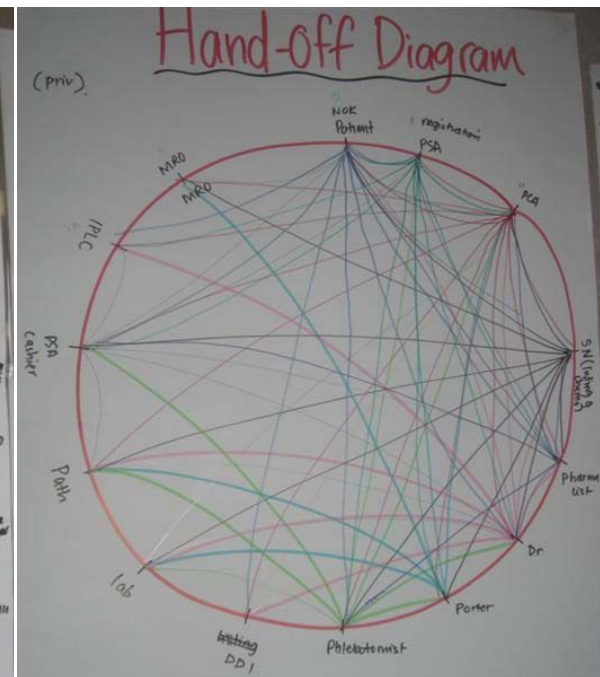 Hand-off Diagram
(priv).
NOK
Patient
registration
PSA
PCA
SN (
Pharma
cist
Dr
Porter
Phlebotomist
listing
DDI
lab
Path
PSA
cashier
IPLC
MRO
MRO